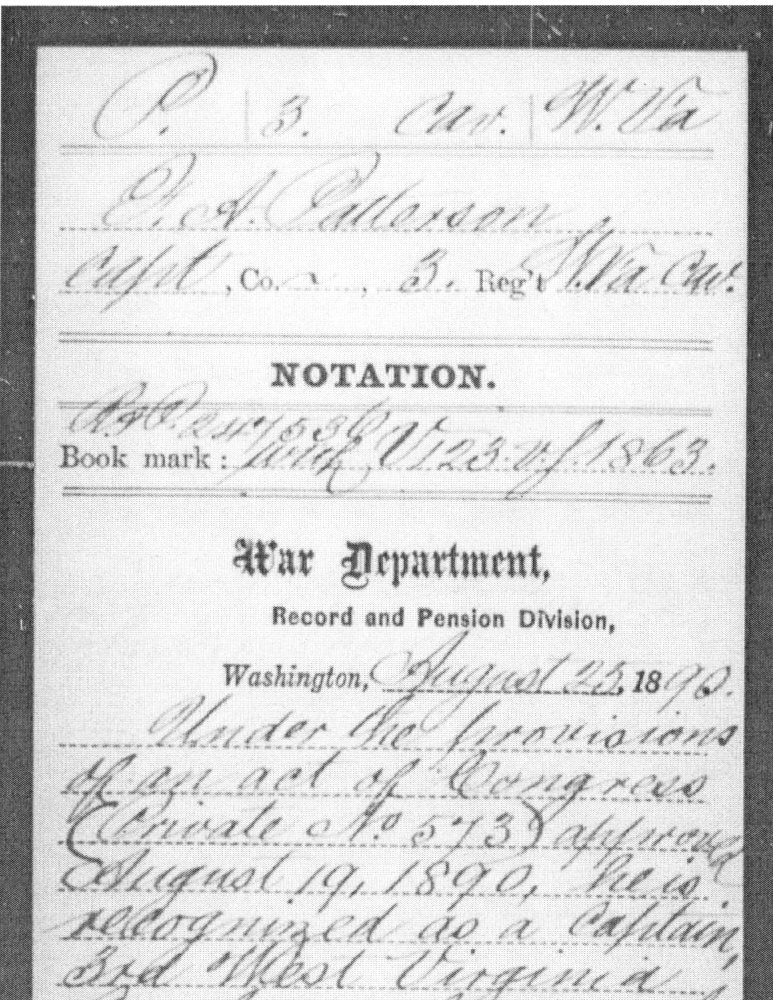 P. 3. Cav. W. Va
F. A. Patterson
Capt, Co. ~, 3. Reg't W. Va Cav.
NOTATION.
Book mark: with V123 of 1863.
War Department,
Record and Pension Division,
Washington, August 23, 1890.
Under the provisions
of an act of Congress
(Private No 573) approved
August 19, 1890, he is
recognized as a Captain,
3rd West Virginia